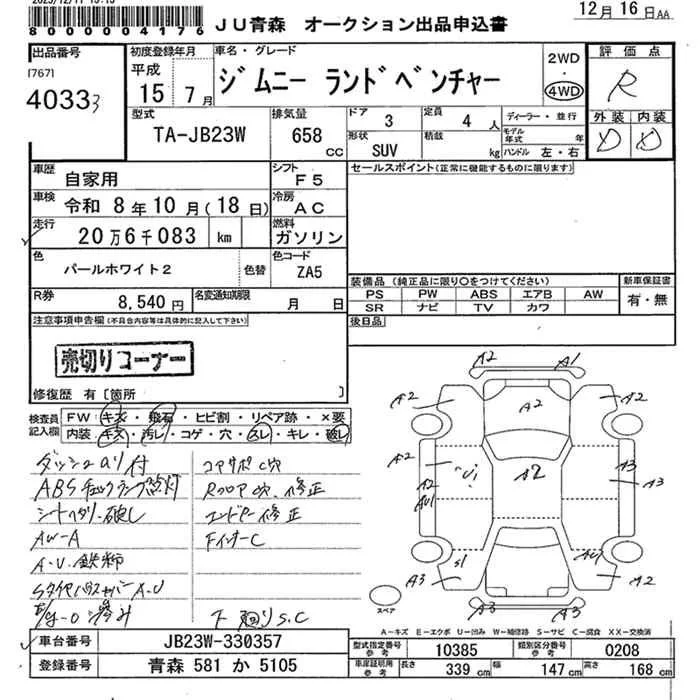 12月 16日AA
80000004176
JU青森 オークション出品申込書
出品番号
[767]
40333
初度登録年月
平成
15年 7月
車名・グレード
ジムニー ランドベンチャー
2WD
・
4WD
評価点
R
外装 内装
D D
型式
TA-JB23W
排気量
658
CC
ドア
3
定員
4 人
形状
SUV
積載
kg
ディーラー・並行
モデル年式 年
ハンドル 左・右
車歴
自家用
シフト
F5
セールスポイント(正常に機能するものに限ります)
車検
令和 8年 10月(18日)
冷房
AC
走行
20万6千083 km
燃料
ガソリン
色
パールホワイト2
色替
色コード
ZA5
装備品(純正品に限り○をつけてください)
PS PW ABS エアB AW
SR ナビ TV カワ
新車保証書
有・無
R券
8,540円
名変通知期限
月 日
後日品
注意事項申告欄(不具合内容等は具体的に記入して下さい)
売切りコーナー
修復歴 有 [箇所 ]
検査員記入欄
FW:キズ・飛石・ヒビ割・リペア跡・×要
内装:キズ・汚レ・コゲ・穴・スレ・キレ・破レ
ABSチェックランプ点灯
シートヘタリ・破レ
AW-A
A・U・鉄粉
コアサポC穴
Rフロア穴、修正
エンドパー修正
FインナーC
下廻りS.C
A2
A1
A2
A2
A2
A2
A2
A2
AU1
A3
A3
S1
AU1
A3
A2
A3
A3
スペア
A-キズ E-エクボ U-凹み W-補修跡 S-サビ C-腐食 XX-交換済
車台番号
JB23W-330357
登録番号
青森 581 か 5105
型式指定番号
参考
10385
類別区分番号
参考
0208
車庫証明用
参考
長さ 339 cm 幅 147 cm 高さ 168 cm